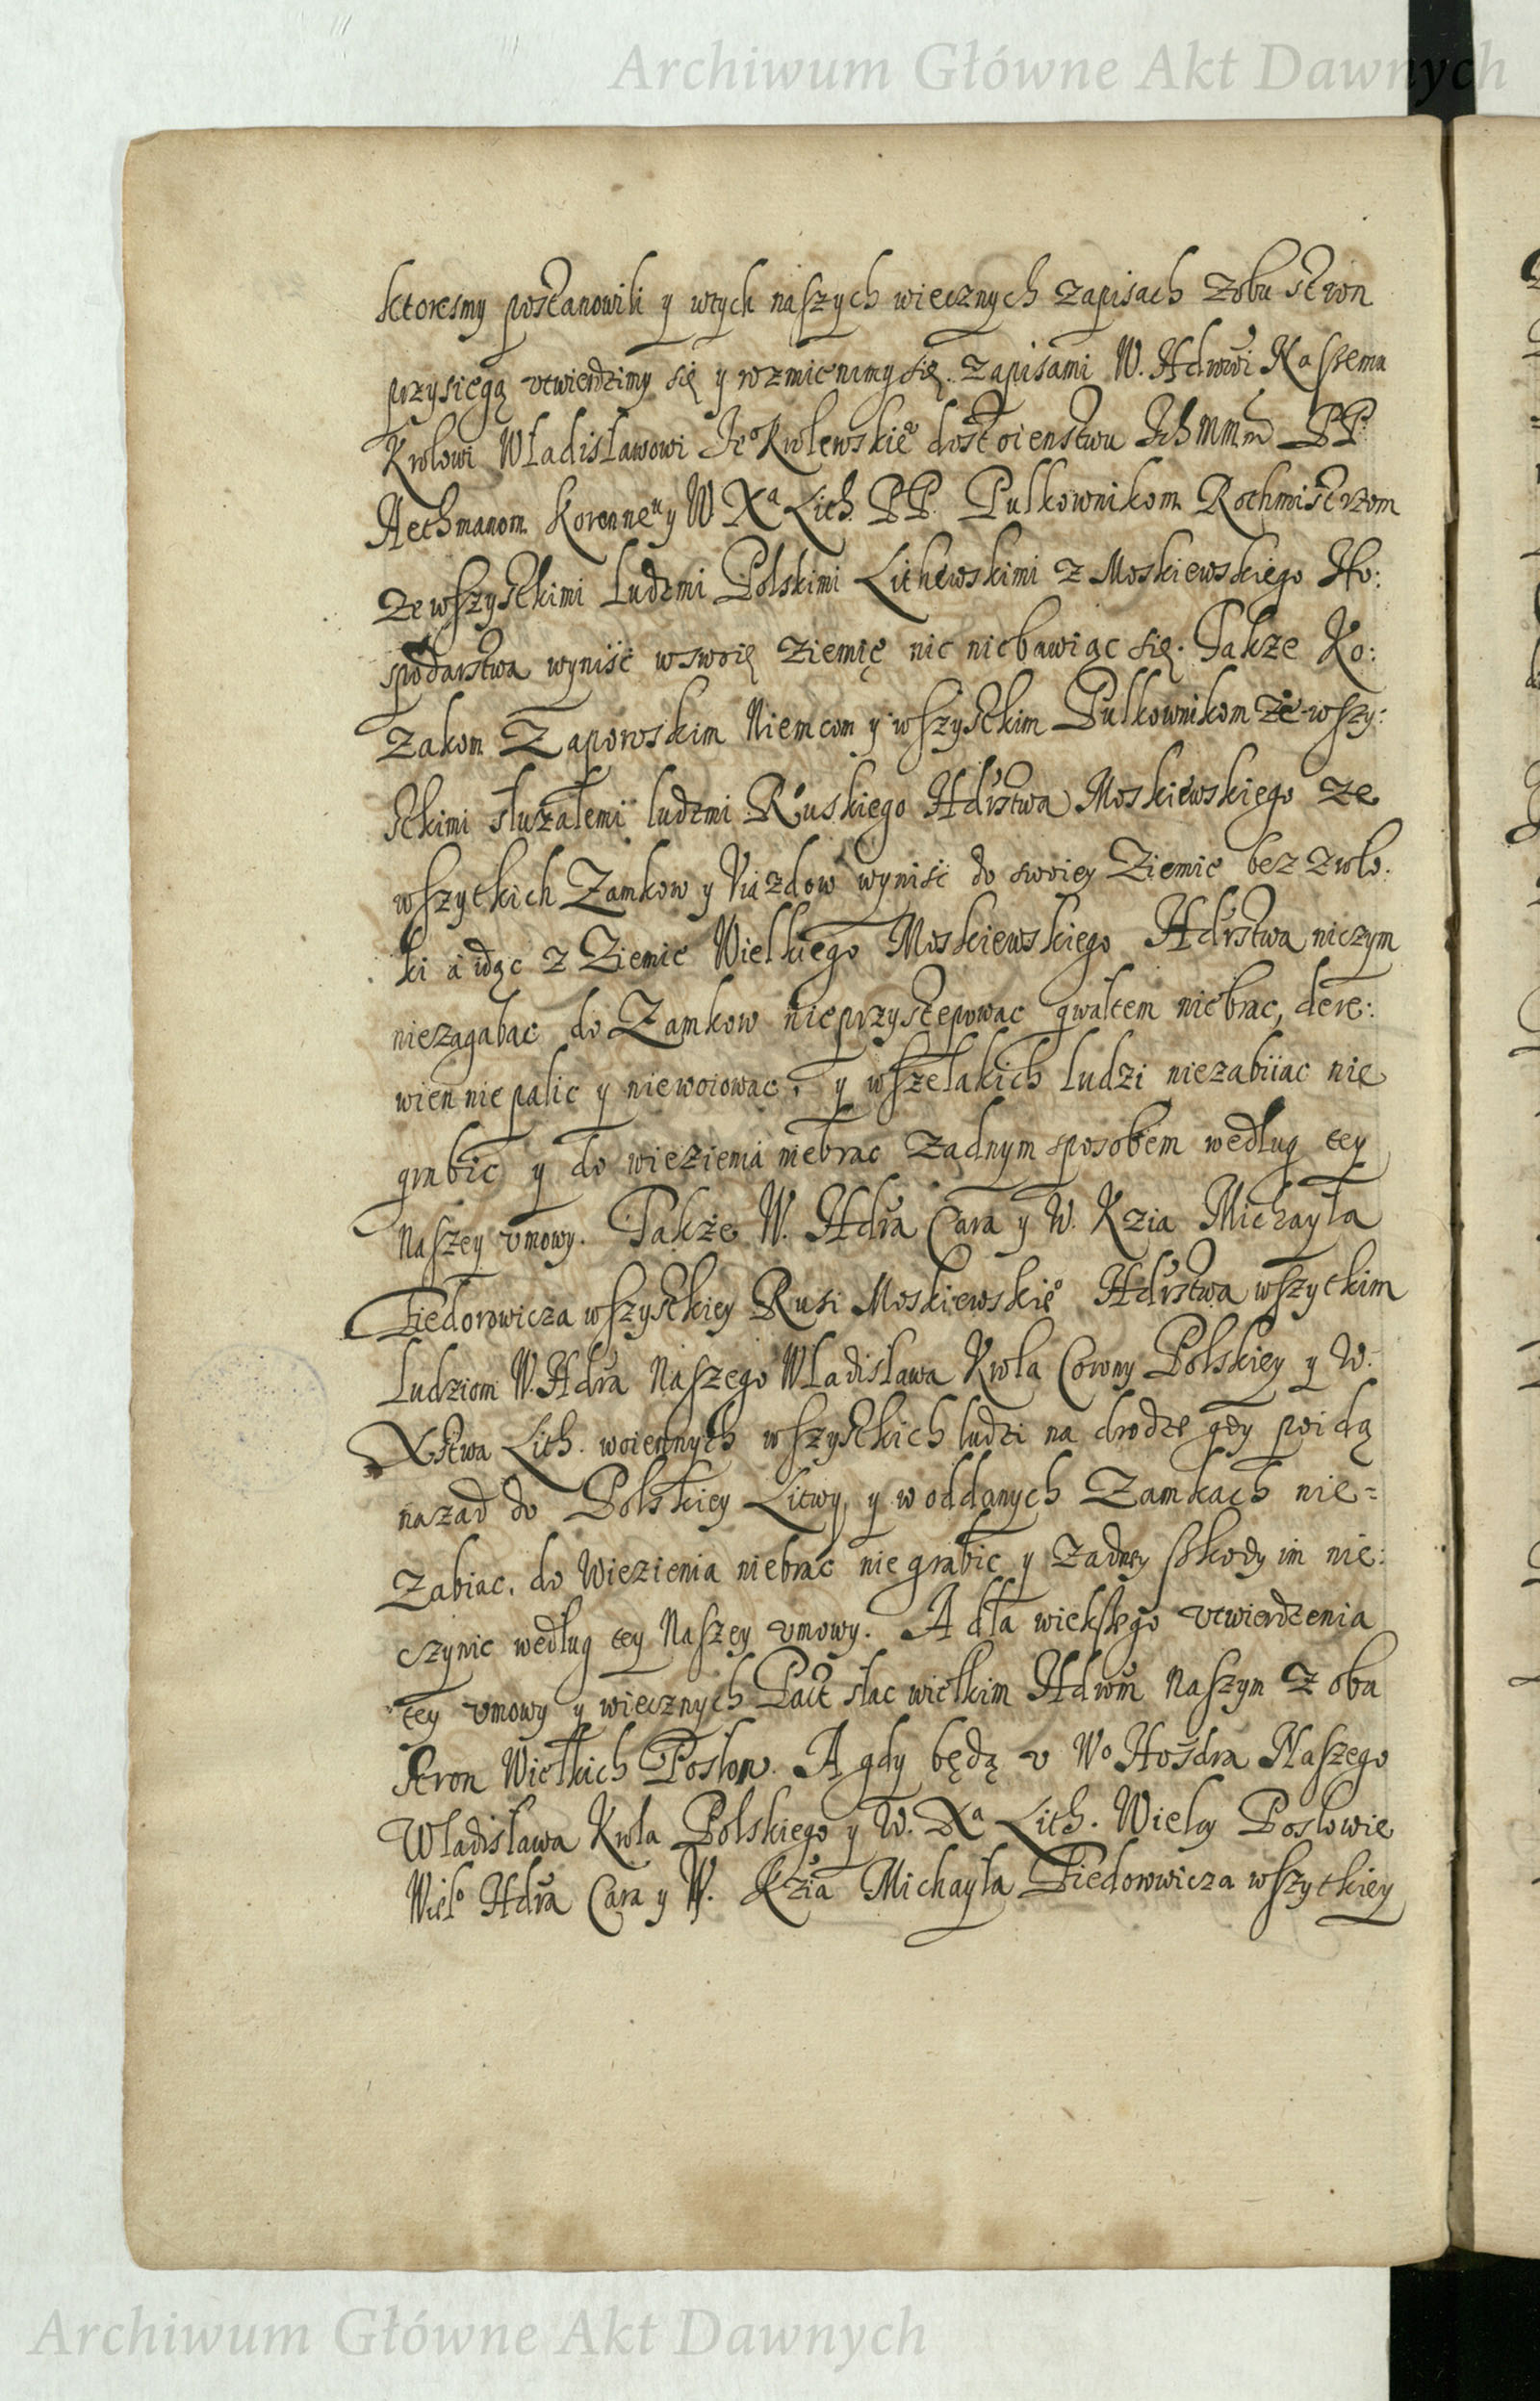 Archiwum Główne Akt Dawnych
ktoresmy postanowili y wtych naszych wiecznych zapisach zobu stron
przysięgą vtwierdzimy się y rozmienimy się. Zapisami W. Hdrowi Naszemu
Krolowi Władisławowi Jeo Krolewskieo dostoienstwu Ich Mmm PP.
Hethmanom Koronneu y W Xa Lith. PP. Pulkownikom Rothmistrzom
ze wszystkimi ludzmi Polskimi Lithewskimi z Moskiewskiego Ho:
spodarstwa wyniść wswoię Ziemię nic niebawiąc się. Takze Ko:
zakom Zaporoskim Niemcom y wszystkim Pulkownikom ze wszy:
stkimi służałemi ludzmi Ruskiego Hdrstwa Moskiewskiego ze
wszytkich Zamkow y Uiazdow wyniść do swoiey Ziemie bez zwło:
ki à idąc z Ziemie Wielkiego Moskiewskiego Hdrstwa niczym
niezagabac do Zamkow nieprzystępowac gwałtem niebrac, dere:
wien nie palic y niewoiowac, y wszelakich ludzi niezabiiac nie
grabic y do wiezienia niebrac żadnym sposobem według tey
Naszey vmowy. Takze W. Hdra Cara y W. Kzia Michayła
Fiedorowicza wszystkiey Rusi Moskiewskieo Hdrstwa wszytkim
Ludziom W. Hdra Naszego Władisława Krola Corony Polskiey y W.
Xstwa Lith. woiennych wszystkich ludzi na drodze gdy poidą
nazad do Polskiey Litwy, y w oddanych Zamkach nie=
zabiac, do Wiezienia niebrać nie grabic y żadney szkody im nie:
czynic według tey Naszey vmowy. A dla wiekszego vtwierdzenia
tey vmowy y wiecznych Pact słac wielkim Hdrom Naszym z obu
stron Wielkich Posłow. A gdy będą v Wo Hosdra Naszego
Władisława Krola Polskiego y W. Xa Lith. Wielcy Posłowie
Wielo Hdra Cara y W. Kzia Michayła Fiedorowicza wszytkiey
Archiwum Główne Akt Dawnych